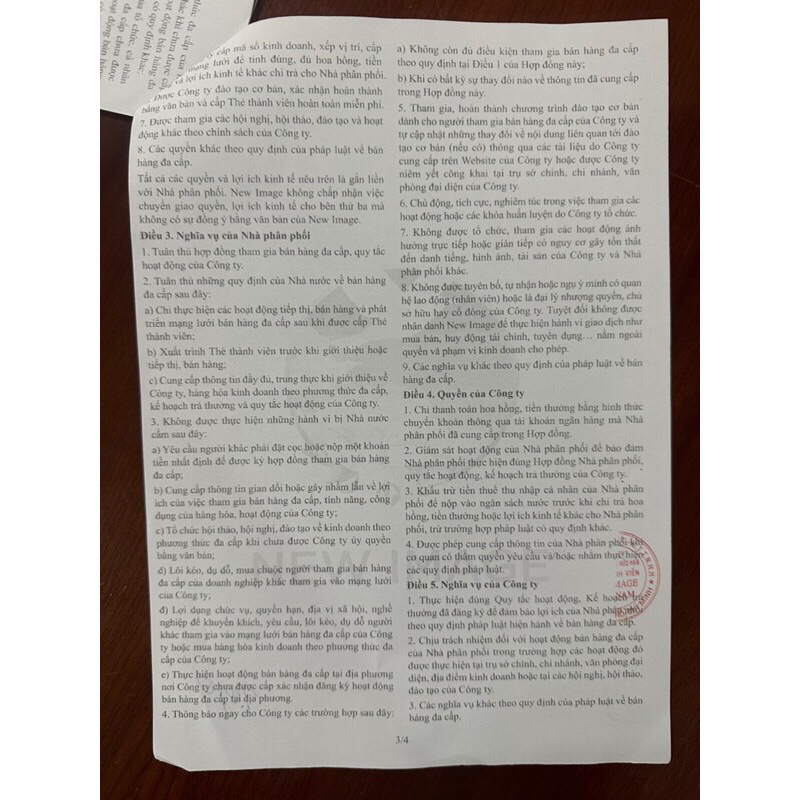 cấp mã số kinh doanh, xếp vị trí, cấp
mạng lưới để tính đúng, đủ hoa hồng, tiền
và lợi ích kinh tế khác chi trả cho Nhà phân phối.
Được Công ty đào tạo cơ bản, xác nhận hoàn thành
bằng văn bản và cấp Thẻ thành viên hoàn toàn miễn phí.
7. Được tham gia các hội nghị, hội thảo, đào tạo và hoạt
động khác theo chính sách của Công ty.
8. Các quyền khác theo quy định của pháp luật về bán
hàng đa cấp.
Tất cả các quyền và lợi ích kinh tế nêu trên là gắn liền
với Nhà phân phối. New Image không chấp nhận việc
chuyển giao quyền, lợi ích kinh tế cho bên thứ ba mà
không có sự đồng ý bằng văn bản của New Image.
Điều 3. Nghĩa vụ của Nhà phân phối
1. Tuân thủ hợp đồng tham gia bán hàng đa cấp, quy tắc
hoạt động của Công ty.
2. Tuân thủ những quy định của Nhà nước về bán hàng
đa cấp sau đây:
a) Chỉ thực hiện các hoạt động tiếp thị, bán hàng và phát
triển mạng lưới bán hàng đa cấp sau khi được cấp Thẻ
thành viên;
b) Xuất trình Thẻ thành viên trước khi giới thiệu hoặc
tiếp thị, bán hàng;
c) Cung cấp thông tin đầy đủ, trung thực khi giới thiệu về
Công ty, hàng hóa kinh doanh theo phương thức đa cấp,
kế hoạch trả thưởng và quy tắc hoạt động của Công ty.
3. Không được thực hiện những hành vi bị Nhà nước
cấm sau đây:
a) Yêu cầu người khác phải đặt cọc hoặc nộp một khoản
tiền nhất định để được ký hợp đồng tham gia bán hàng
đa cấp;
b) Cung cấp thông tin gian dối hoặc gây nhầm lẫn về lợi
ích của việc tham gia bán hàng đa cấp, tính năng, công
dụng của hàng hóa, hoạt động của Công ty;
c) Tổ chức hội thảo, hội nghị, đào tạo về kinh doanh theo
phương thức đa cấp khi chưa được Công ty ủy quyền
bằng văn bản;
d) Lôi kéo, dụ dỗ, mua chuộc người tham gia bán hàng
đa cấp của doanh nghiệp khác tham gia vào mạng lưới
của Công ty;
đ) Lợi dụng chức vụ, quyền hạn, địa vị xã hội, nghề
nghiệp để khuyến khích, yêu cầu, lôi kéo, dụ dỗ người
khác tham gia vào mạng lưới bán hàng đa cấp của Công
ty hoặc mua hàng hóa kinh doanh theo phương thức đa
cấp của Công ty;
e) Thực hiện hoạt động bán hàng đa cấp tại địa phương
nơi Công ty chưa được cấp xác nhận đăng ký hoạt động
bán hàng đa cấp tại địa phương.
4. Thông báo ngay cho Công ty các trường hợp sau đây:
a) Không còn đủ điều kiện tham gia bán hàng đa cấp
theo quy định tại Điều 1 của Hợp đồng này;
b) Khi có bất kỳ sự thay đổi nào về thông tin đã cung cấp
trong Hợp đồng này.
5. Tham gia, hoàn thành chương trình đào tạo cơ bản
dành cho người tham gia bán hàng đa cấp của Công ty và
tự cập nhật những thay đổi về nội dung liên quan tới đào
tạo cơ bản (nếu có) thông qua các tài liệu do Công ty
cung cấp trên Website của Công ty hoặc được Công ty
niêm yết công khai tại trụ sở chính, chi nhánh, văn
phòng đại diện của Công ty.
6. Chủ động, tích cực, nghiêm túc trong việc tham gia các
hoạt động hoặc các khóa huấn luyện do Công ty tổ chức.
7. Không được tổ chức, tham gia các hoạt động ảnh
hưởng trực tiếp hoặc gián tiếp có nguy cơ gây tổn thất
đến danh tiếng, hình ảnh, tài sản của Công ty và Nhà
phân phối khác.
8. Không được tuyên bố, tự nhận hoặc ngụ ý mình có quan
hệ lao động (nhân viên) hoặc là đại lý nhượng quyền, chủ
sở hữu hay cổ đông của Công ty. Tuyệt đối không được
nhân danh New Image để thực hành vi giao dịch như
mua bán, huy động tài chính, tuyển dụng... nằm ngoài
quyền và phạm vi kinh doanh cho phép.
9. Các nghĩa vụ khác theo quy định của pháp luật về bán
hàng đa cấp.
Điều 4. Quyền của Công ty
1. Chi thanh toán hoa hồng, tiền thưởng bằng hình thức
chuyển khoản thông qua tài khoản ngân hàng mà Nhà
phân phối đã cung cấp trong Hợp đồng.
2. Giám sát hoạt động của Nhà phân phối để bảo đảm
Nhà phân phối thực hiện đúng Hợp đồng Nhà phân phối,
quy tắc hoạt động, kế hoạch trả thưởng của Công ty.
3. Khấu trừ tiền thuế thu nhập cá nhân của Nhà phân
phối để nộp vào ngân sách nước trước khi chi trả hoa
hồng, tiền thưởng hoặc lợi ích kinh tế khác cho Nhà phân
phối, trừ trường hợp pháp luật có quy định khác.
4. Được phép cung cấp thông tin của Nhà phân phối khi
cơ quan có thẩm quyền yêu cầu và/hoặc nhằm thực hiện
các quy định pháp luật.
Điều 5. Nghĩa vụ của Công ty
1. Thực hiện đúng Quy tắc hoạt động, Kế hoạch trả
thưởng đã đăng ký để đảm bảo lợi ích của Nhà phân phối
theo quy định pháp luật hiện hành về bán hàng đa cấp.
2. Chịu trách nhiệm đối với hoạt động bán hàng đa cấp
của Nhà phân phối trong trường hợp các hoạt động đó
được thực hiện tại trụ sở chính, chi nhánh, văn phòng đại
diện, địa điểm kinh doanh hoặc tại các hội nghị, hội thảo,
đào tạo của Công ty.
3. Các nghĩa vụ khác theo quy định của pháp luật về bán
hàng đa cấp.
3/4